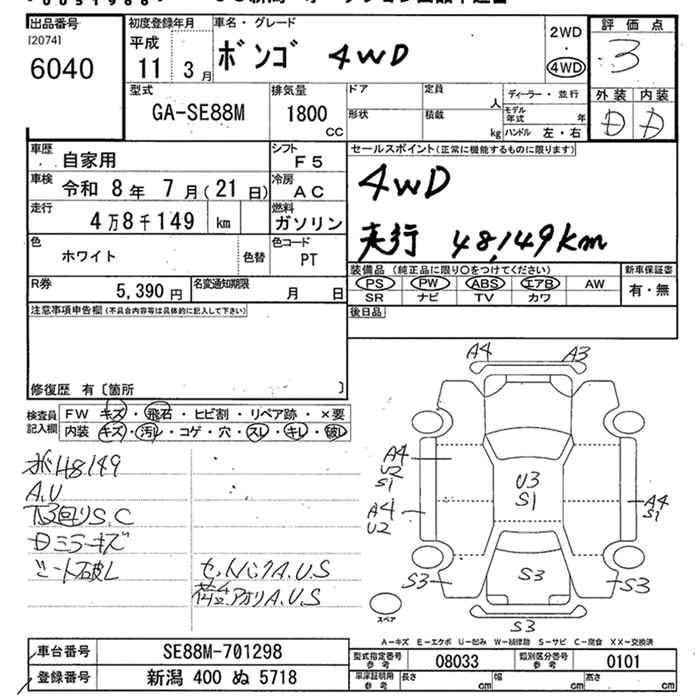 出品番号
[2074]
6040
初度登録年月
平成
11 3月
車名・グレード
ボンゴ 4WD
2WD
・
4WD
評価点
3
外装 内装
D D
型式
GA-SE88M
排気量
1800
CC
ドア
定員
人
形状
積載
kg
ディーラー・並行
モデル年式 年
ハンドル 左・右
車歴
自家用
シフト
F5
車検
令和 8年 7月(21日)
冷房
AC
走行
4万8千149 km
燃料
ガソリン
色
ホワイト
色替
色コード
PT
R券
5,390円
名変通知期限
月 日
セールスポイント(正常に機能するものに限ります)
4WD
走行 48,149km
装備品 (純正品に限り○をつけてください)
PS PW ABS エアB AW
SR ナビ TV カワ
新車保証書
有・無
後日品
注意事項申告欄(不具合内容等は具体的に記入して下さい)
修復歴 有〔箇所 〕
検査員記入欄
FW キズ・飛石・ヒビ割・リペア跡・×要
内装 キズ・汚レ・コゲ・穴・スレ・キレ・破レ
48149
A.U
下回りS.C
Dミラーキズ
シート破レ
セットバックA.U.S
荷台アオリA.U.S
A4 A3
A4
U2
S1
A4
U2
U3
S1
A4
S1
S3 S3 S3
S3
スペア
A-キズ E-エクボ U-凹み W-補修跡 S-サビ C-腐食 XX-交換済
車台番号
SE88M-701298
登録番号
新潟 400 ぬ 5718
型式指定番号
参考
08033
類別区分番号
参考
0101
車庫証明用
参考
長さ cm
幅 cm
高さ cm